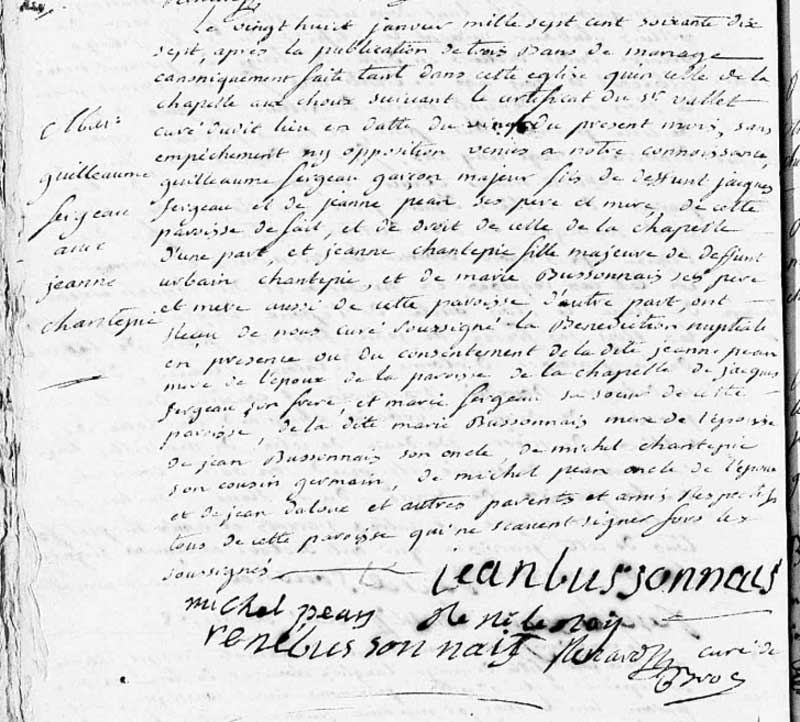 Le vingt huit janvier mille sept cent soixante dix
sept, apres la publication de trois Bans de mariage
canoniquement faite tant dans cette eglise qu'en celle de la
chapelle aux choux suivant le certificat du Sr vallet
curé dudit lieu en datte du vingt du present mois, sans
empéchement ny opposition venies a notre connoissance,
guilleaume Sergeau garçon majeur fils de deffunt jacques
Sergeau et de jeanne pean ses pere et mere, de cette
paroisse de fait, et de droit de celle de la chapelle
d'une part, et jeanne chantepie fille majeure de deffunt
urbain chantepie, et de marie Bussonnais ses pere
et mere aussi de cette paroisse d'autre part, ont
Reçu de nous curé soussigné la Benediction nuptiale
en presence ou du consentement de la dite jeanne pean
mere de l'epoux de la paroisse de la chapelle de jacques
Sergeau son frere, et marie Sergeau sa soeur de cette
paroisse, de la dite marie Bussonnais mere de l'epouse
de jean Bussonnais son oncle, de michel chantepie
son cousin germain, de michel pean oncle de l'epoux
et de jean et autres parents et amis
tous de cette paroisse qui ne scavent signer fors les
soussignés
guilleaume
Sergeau
avec
jeanne
chantepie
jean bussonnais
michel pean
rene bussonnais
curé de